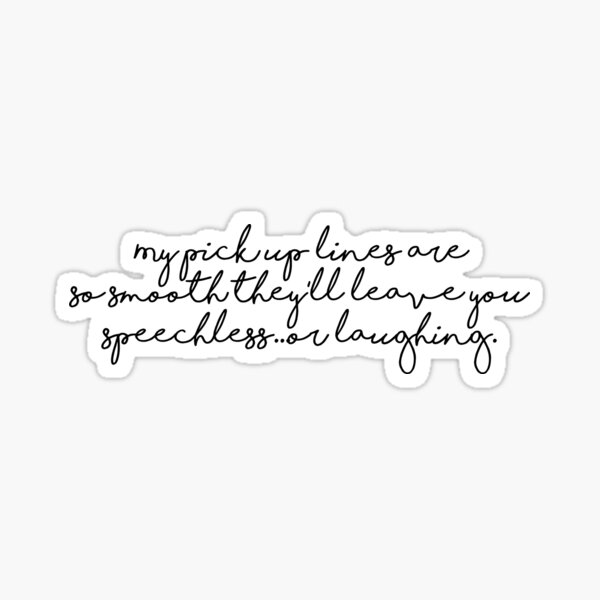 my pick up lines are
so smooth they'll leave you
speechless..or laughing.